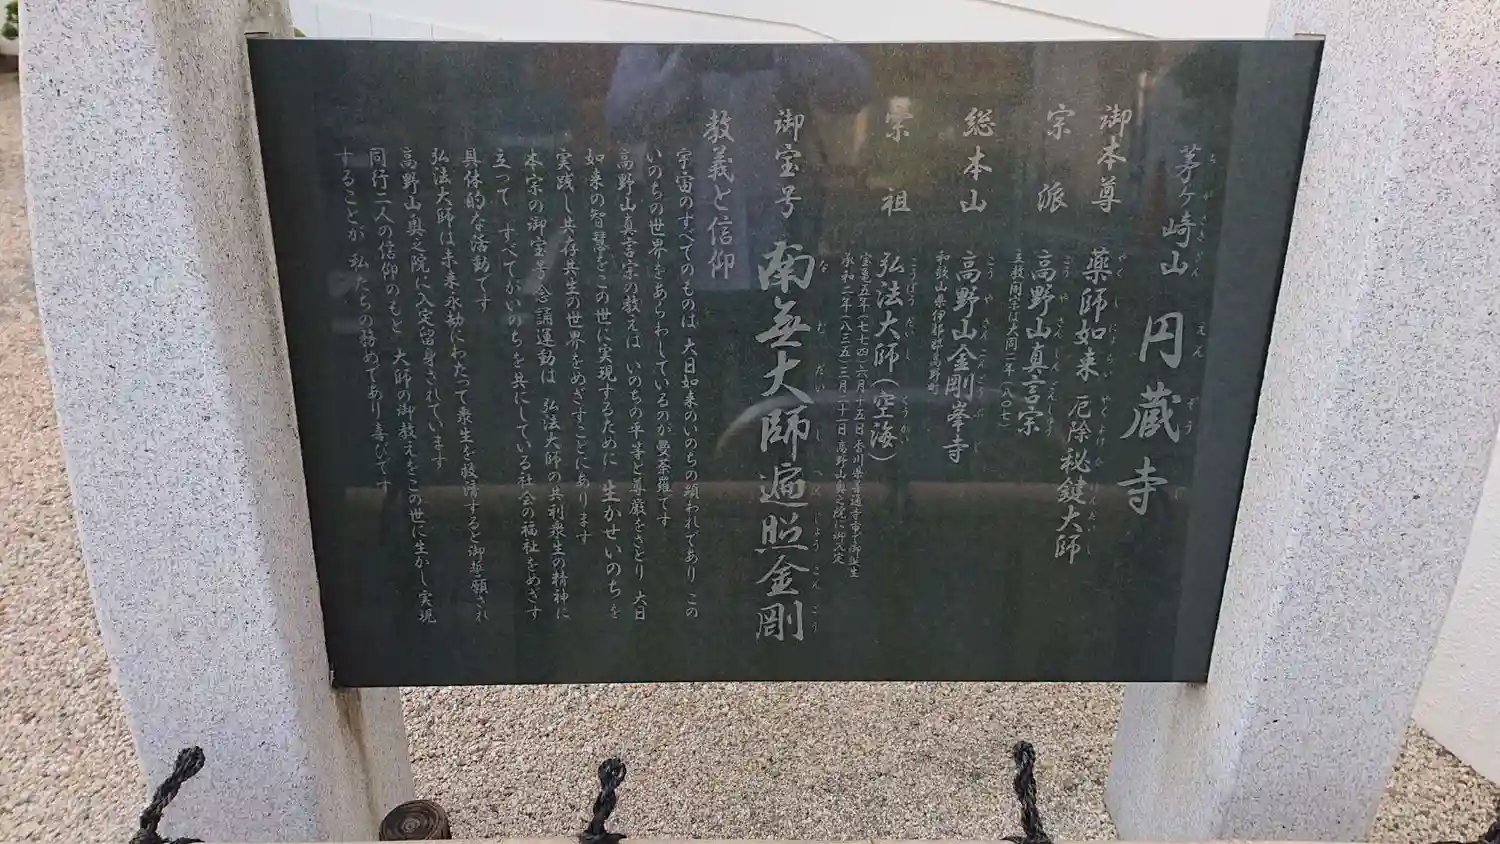 茅ヶ崎山 円蔵寺
ち がさきさん えん ぞう じ
御本尊 薬師如来 厄除秘鍵大師
やく し にょらい やくよけ ひ けんだいし
宗派 高野山真言宗
こう や さんしんごんしゅう
立教開宗は大同二年(八〇七)
総本山 高野山金剛峯寺
こう や さんこんごうぶ じ
和歌山県伊都郡高野町
宗祖 弘法大師(空海)
こうぼう だいし くうかい
宝亀五年(七七四)六月十五日 香川県善通寺市で御誕生
承和二年(八三五)三月二十一日 高野山奥之院に御入定
御宝号 南無大師遍照金剛
な む だい し へん じょう こん ごう
教義と信仰
宇宙のすべてのものは 大日如来のいのちの顕われであり この
いのちの世界をあらわしているのが曼荼羅です
高野山真言宗の教えは いのちの平等と尊厳をさとり 大日
如来の智慧をこの世に実現するために 生かせいのちを
実践し共存共生の世界をめざすことにあります
本宗の御宝号念誦運動は 弘法大師の共利衆生の精神に
立って すべてがいのちを共にしている社会の福祉をめざす
具体的な活動です
弘法大師は未来永劫にわたって衆生を救済すると御誓願され
高野山奥之院に入定留身されています
同行二人の信仰のもと 大師の御教えをこの世に生かし実現
することが 私たちの務めであり喜びです